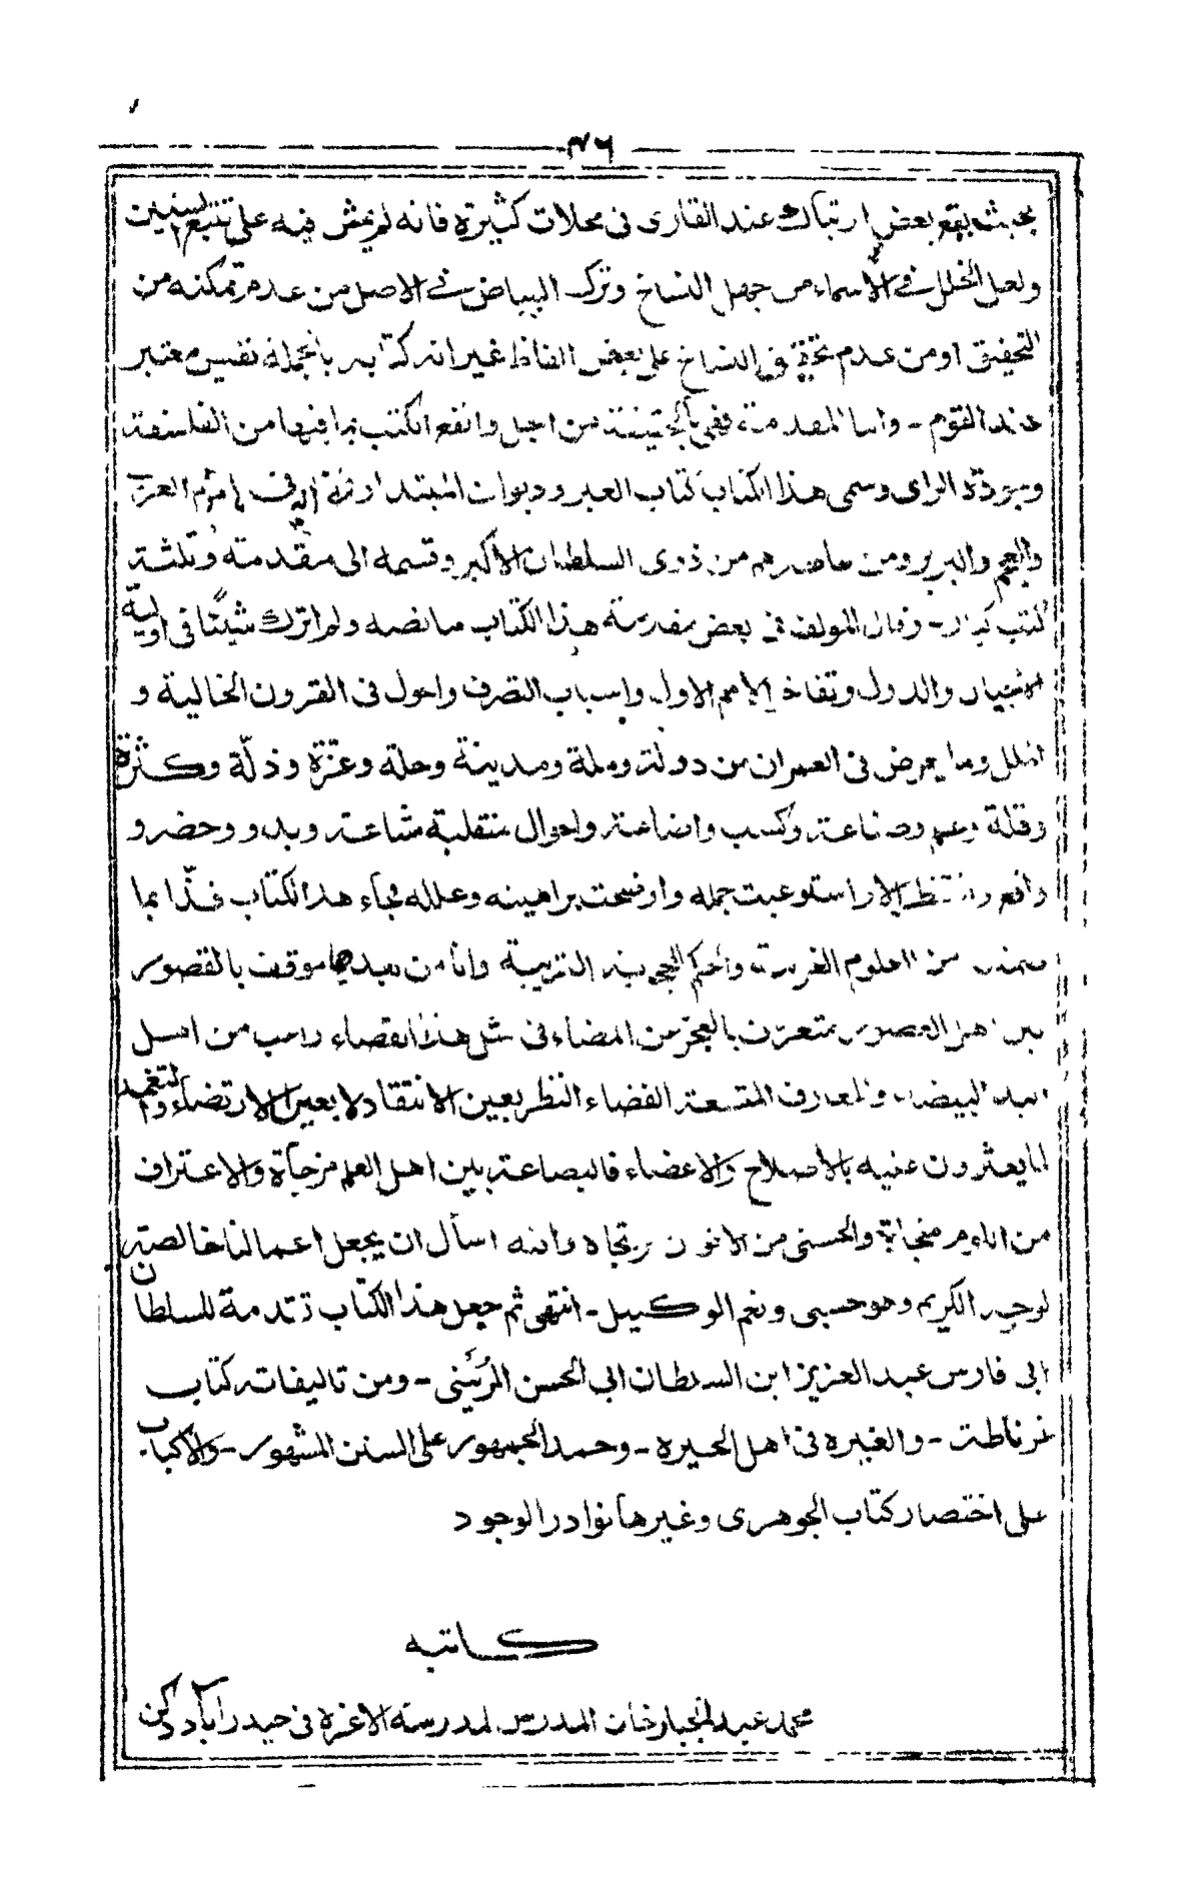 ٧٦
بحيث يقع بعض ارتباك عند القارى فى محلات كثيرة فانه لم يمش فيه على تتبع السنين
ولعل الخلل فى الاسماء من جهل النساخ وترك البياض فى الاصل من عدم تمكنه من
التحقيق اومن عدم النساخ على بعض الفاظ غير انه كتابه بالجملة نفيس معتبر
عند القوم - واما المقدمة فهى بالحقيقة من اجل وانفع الكتب بما فيها من الفلسفة
وجودة الراى وسمى هذا الكتاب كتاب العبر وديوان المبتدا فى ايام العرب
والعجم والبربر ومن عاصرهم من ذوى السلطان الاكبر وقسمه الى مقدمته وثلثة
كتب كبار - وقال المؤلف فى بعض مقدمته هذا الكتاب مانصه ولم اترك شيئًا فى اولية
الاجيال والدول وتفاخ الامم الاول واسباب التصرف واحول فى القرون الخالية و
الملل وما يعرض فى العمران من دولة وملة ومدينة وحلة وعزّة وذلّة وكثرة
وقلة وعلم وصناعة وكسب واضاعة واحوال متقلبة مشاعة وبدو وحضر و
واقع ومنتظر الا واستوعبت جمله واوضحت براهينه وعلله فجاء هذا الكتاب فذّا بما
ضمنته من العلوم الغريبة والحكم المحجوبة القريبة وانا من بعدها موقن بالقصور
بين اهل العصور معترف بالعجز من المضاء فى مثل هذا القضاء راغب من اهل
اليد البيضاء والمعارف المتسعة الفضاء النظر بعين الانتقاد لا بعين الارتضاء والتغمد
لما يعثرون عليه بالاصلاح والاغضاء فالبضاعة بين اهل العلم مزجاة والاعتراف
من اللوم منجاة والحسنى من الاخوان مرتجاه والله اسأل ان يجعل اعمالنا خالصة
لوجهه الكريم وهو حسبى ونعم الوكيل - انتهى ثم جعل هذا الكتاب تقدمة للسلطان
ابى فارس عبد العزيز ابن السلطان ابى الحسن المُرَيْنى - ومن تاليفاته كتاب
غرناطة - والغيره فى اهل الحيره - وحمد الجمهور على السنن المشهور - والاكباب
على اختصار كتاب الجوهرى وغيرها نوادر الوجود
كاتبه
محمد عبد الجبار خان المدرس لمدرسة الاعزه فى حيدر آباد دكن